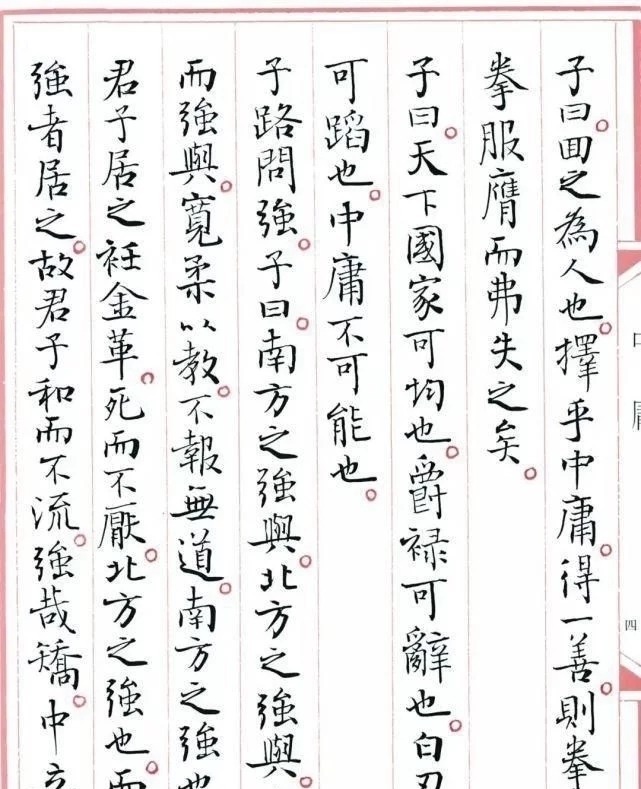 中庸
四
子曰。回之為人也。擇乎中庸。得一善。則拳
拳服膺而弗失之矣。
子曰。天下國家可均也。爵禄可辭也。白刃
可蹈也。中庸不可能也。
子路問強。子曰。南方之強與。北方之強與。
而強與。寬柔以教。不報無道。南方之強也
君子居之衽金革。死而不厭。北方之強也。而
強者居之。故君子和而不流。強哉矯。中立